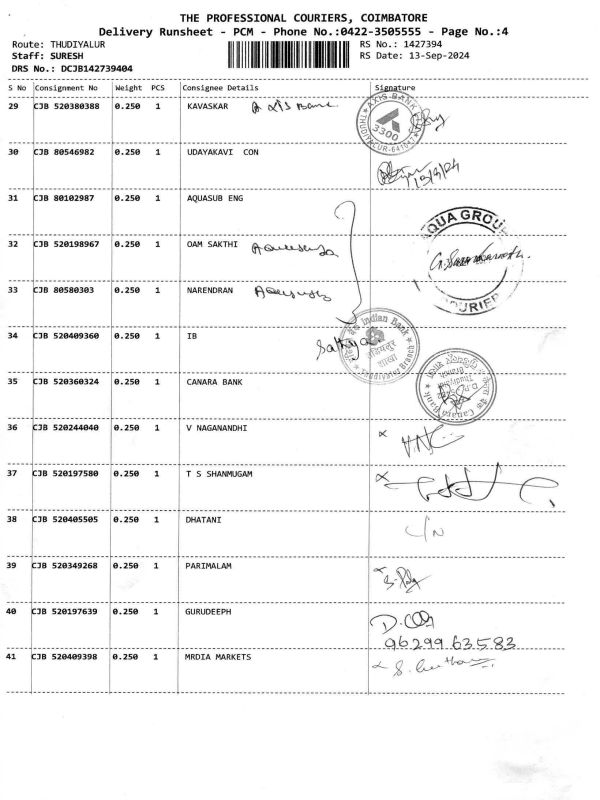 THE PROFESSIONAL COURIERS, COIMBATORE
Delivery Runsheet - PCM - Phone No.:0422-3505555 - Page No.:4
Route: THUDIYALUR RS No.: 1427394
Staff: SURESH RS Date: 13-Sep-2024
DRS No.: DCJB142739404
S No Consignment No Weight PCS Consignee Details Signature
29 CJB 520380388 0.250 1 KAVASKAR Axis Bank
AXIS BANK
3300
THUDIYALUR-641047
30 CJB 80546982 0.250 1 UDAYAKAVI CON
13/9/24
31 CJB 80102987 0.250 1 AQUASUB ENG
AQUA GROUP
COURIER
32 CJB 520198967 0.250 1 OAM SAKTHI
33 CJB 80580303 0.250 1 NARENDRAN
34 CJB 520409360 0.250 1 IB
Indian Bank
शाखा
Thudiyalur Branch
35 CJB 520360324 0.250 1 CANARA BANK
Canara Bank
36 CJB 520244040 0.250 1 V NAGANANDHI
37 CJB 520197580 0.250 1 T S SHANMUGAM
38 CJB 520405505 0.250 1 DHATANI
39 CJB 520349268 0.250 1 PARIMALAM
40 CJB 520197639 0.250 1 GURUDEEPH
96299 63583
41 CJB 520409398 0.250 1 MRDIA MARKETS